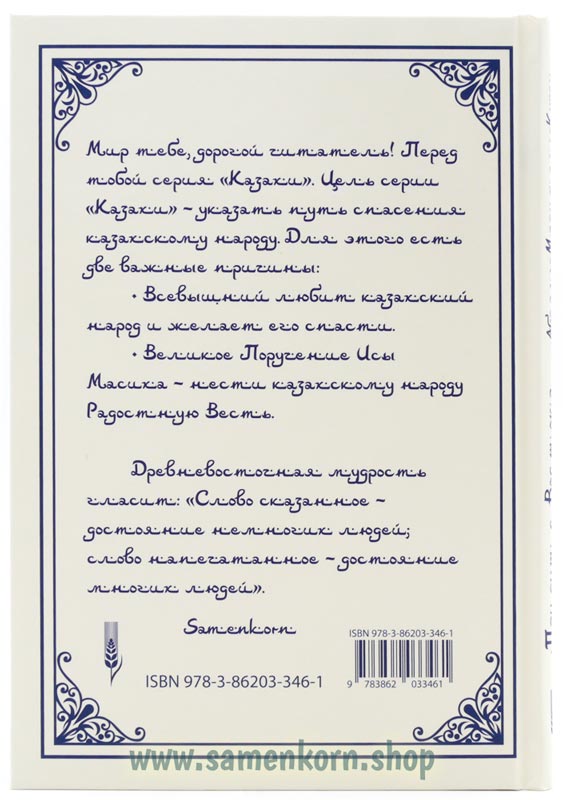 Мир тебе, дорогой читатель! Перед
тобой серия «Казахи». Цель серии
«Казахи» – указать путь спасения
казахскому народу. Для этого есть
две важные причины:
• Всевышний любит казахский
народ и желает его спасти.
• Великое Поручение Исы
Масиха – нести казахскому народу
Радостную Весть.
Древневосточная мудрость
гласит: «Слово сказанное –
достояние немногих людей;
слово напечатанное – достояние
многих людей».
Samenkorn
ISBN 978-3-86203-346-1
ISBN 978-3-86203-346-1
9 783862 033461
www.samenkorn.shop